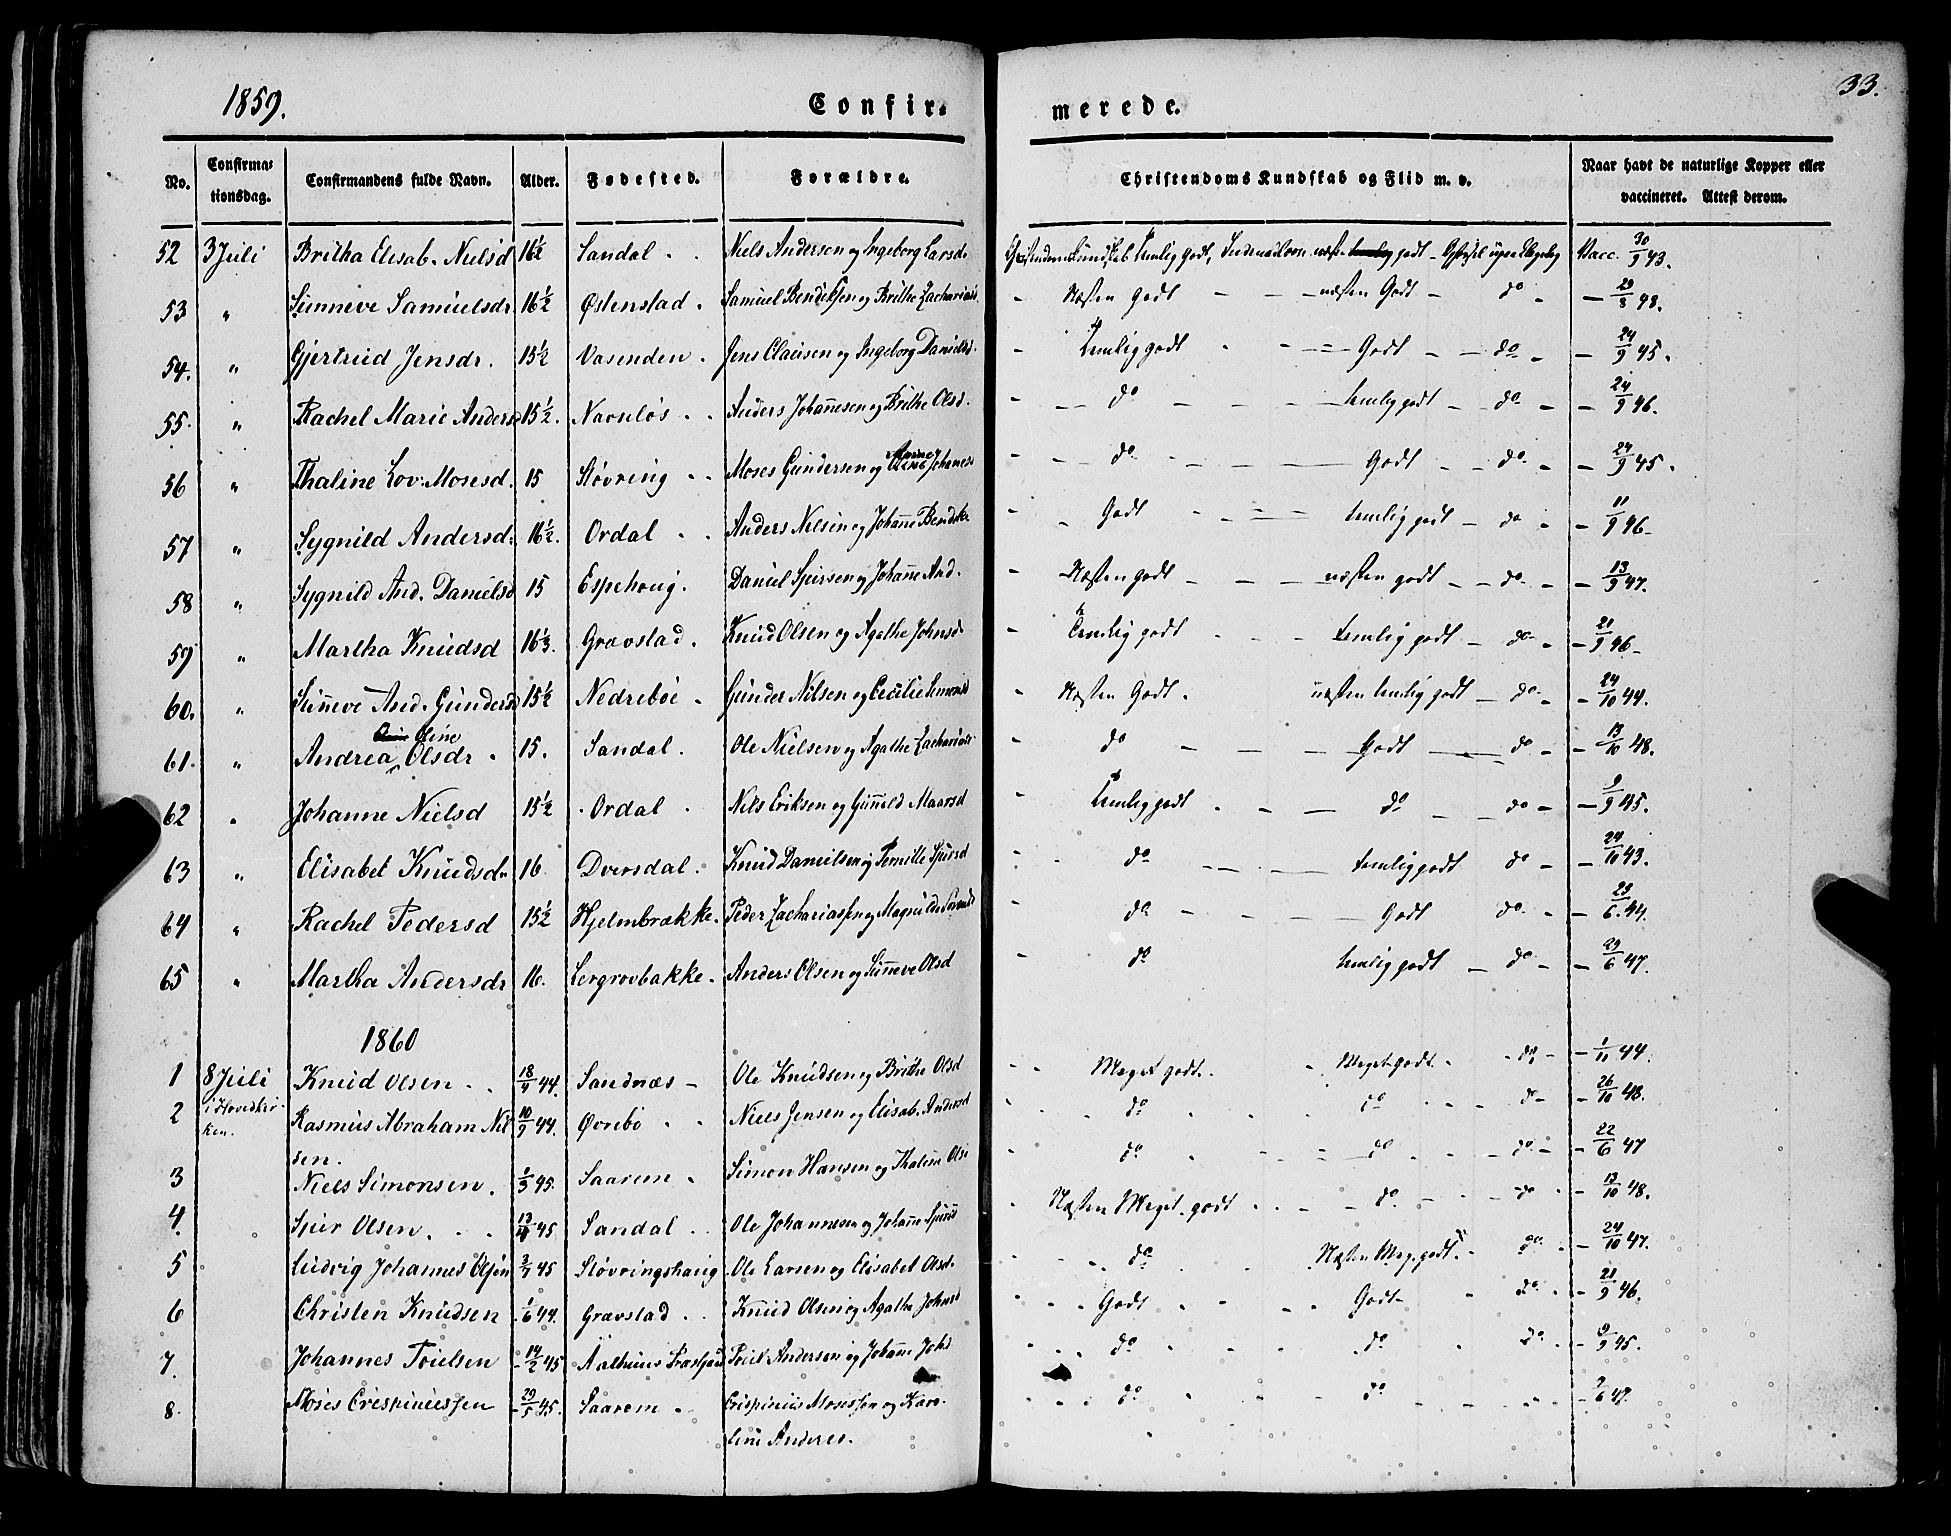 1859.
Confir-
merede.
33.
No.
Confirma-
tionsdag.
Confirmandens fulde Navn.
Alder.
Fødested.
Forældre.
Christendoms Kundskab og Flid m. v.
Naar havt de naturlige Kopper eller
vaccineret. Attest derom.
52 3 Juli Britha Elisab. Nielsd 16 1/2 Sandal Niels Andersen og Ingeborg Larsd. Christendomskundskab temlig godt, næsten godt Vacc. 30/9 43.
53 " Sunneve Samuelsdr 16 1/2 Østenstad Samuel Bendiksen og Brithe Zachariasd Næsten Godt - - næsten Godt - do - 29/8 48.
54. " Gjertrud Jensdr. 15 1/2 Vasenden Jens Clausen og Ingeborg Danielsd. Temlig godt - - Godt - do - 24/9 45.
55. " Rachel Marie Andersd 15 1/2. Navnløs Anders Johannesen og Brithe Olsd. do - temlig godt - do - 24/9 46.
56 " Thaline Lov. Mosesd. 15 Støvring Moses Gundersen og Anne Johanesd do - Godt - do - 24/9 45.
57 " Sygnild Andersd. 16 1/2. Ordal Anders Nilsen og Johanne Bendiks Godt - temlig godt - do - 11/9 46
58 " Sygnild And. Danielsd 15 Espehoug. Daniel Sjursen og Johanne And. Næsten godt - næsten godt - do - 13/9 47.
59 " Martha Knudsd 16 1/3. Gravstad. Knud Olsen og Agathe Johnsd Temlig godt - temlig godt - do - 21/9 46
60. " Sunneve And. Gundersd 15 1/2 Nedrebøe Gunder Nilsen og Cecilie Simonsd Næsten Godt. næsten temlig godt - do - 24/10 44.
Oline
61. " Andrea Olsdr. 15. Sandal. Ole Nielsen og Agathe Zachariasd do - Godt - do - 13/10 48.
62 " Johanne Nielsd 15 1/2 Ordal Nils Eriksen og Gunnild Maarsd Temlig godt - do - do - 9/9 45.
63 " Elisabet Knudsd. 16 Dversdal. Knud Danielsen og Pernille Sjursd do - temlig godt do - 24/10 43.
64 " Rachel Pedersd 15 1/2 Hjelmbrække. Peder Zachariassen og Magnilde do - Godt do - 29/6 44.
65 " Martha Andersdr 16. Lergrovbakke. Anders Olsen og Sunneve Olsd do temlig godt - do - 29/6 47.
1860
1 8 Juli Knud Olsen 18/9 44. Sandnæs Ole Knudsen og Brithe Olsd Meget godt. - Meget godt. - do - 1/11 44.
2 i Hovedkir- Rasmus Abraham Nil 10/9 44. Øvrebø Niels Jensen og Elisab. Andersd do do do - 26/10 48.
ken. sen.
3 Niels Simonsen. 1/3 45. Saarem Simon Hansen og Thaline Ols do - do - do - 22/6 47
4. Sjur Olsen. 45 Sandal Ole Johannesen og Johanne Sjursd Næsten Meget godt - do - do - 13/10 48.
5 Ludvig Johannes Olsen 3/7 45 Støvringshaug Ole Larsen og Elisabet Olsd. do Næsten Meg. godt. do - 24/10 47.
6 Christen Knudsen 1/6 44. Gravstad Knud Olsen og Agathe Johnsd Godt - Godt - do - 21/9 46.
7. Johannes Poulsen 14/2 45 Aalhuus Præstgaard Poul Andersen og Johanne Johs do do do - 9/9 45.
8. Moses Crespiniussen 29/5 45. Saarem Crispinius Mosessen og Karo- do do - 7/6 47.
line Anders.